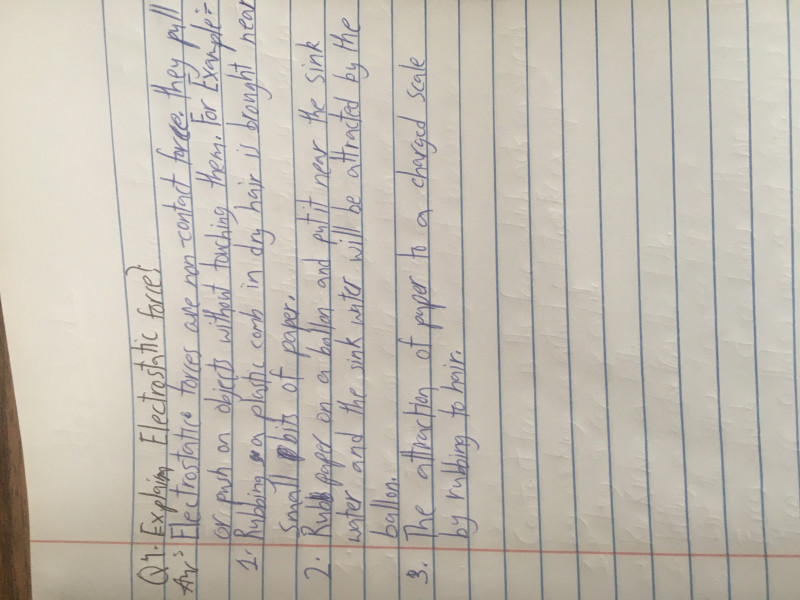 Q4. Explain Electrostatic force?
Ans: Electrostatic forces are non-contact force. they pull
or push on objects without touching them. For Example:-
1. Rubbing a plastic comb in dry hair is brought near
small bits of paper.
2. Rub paper on a ballon and put it near the sink
water and the sink water will be attracted by the
ballon.
3. The attraction of paper to a charged scale
by rubbing to hair.